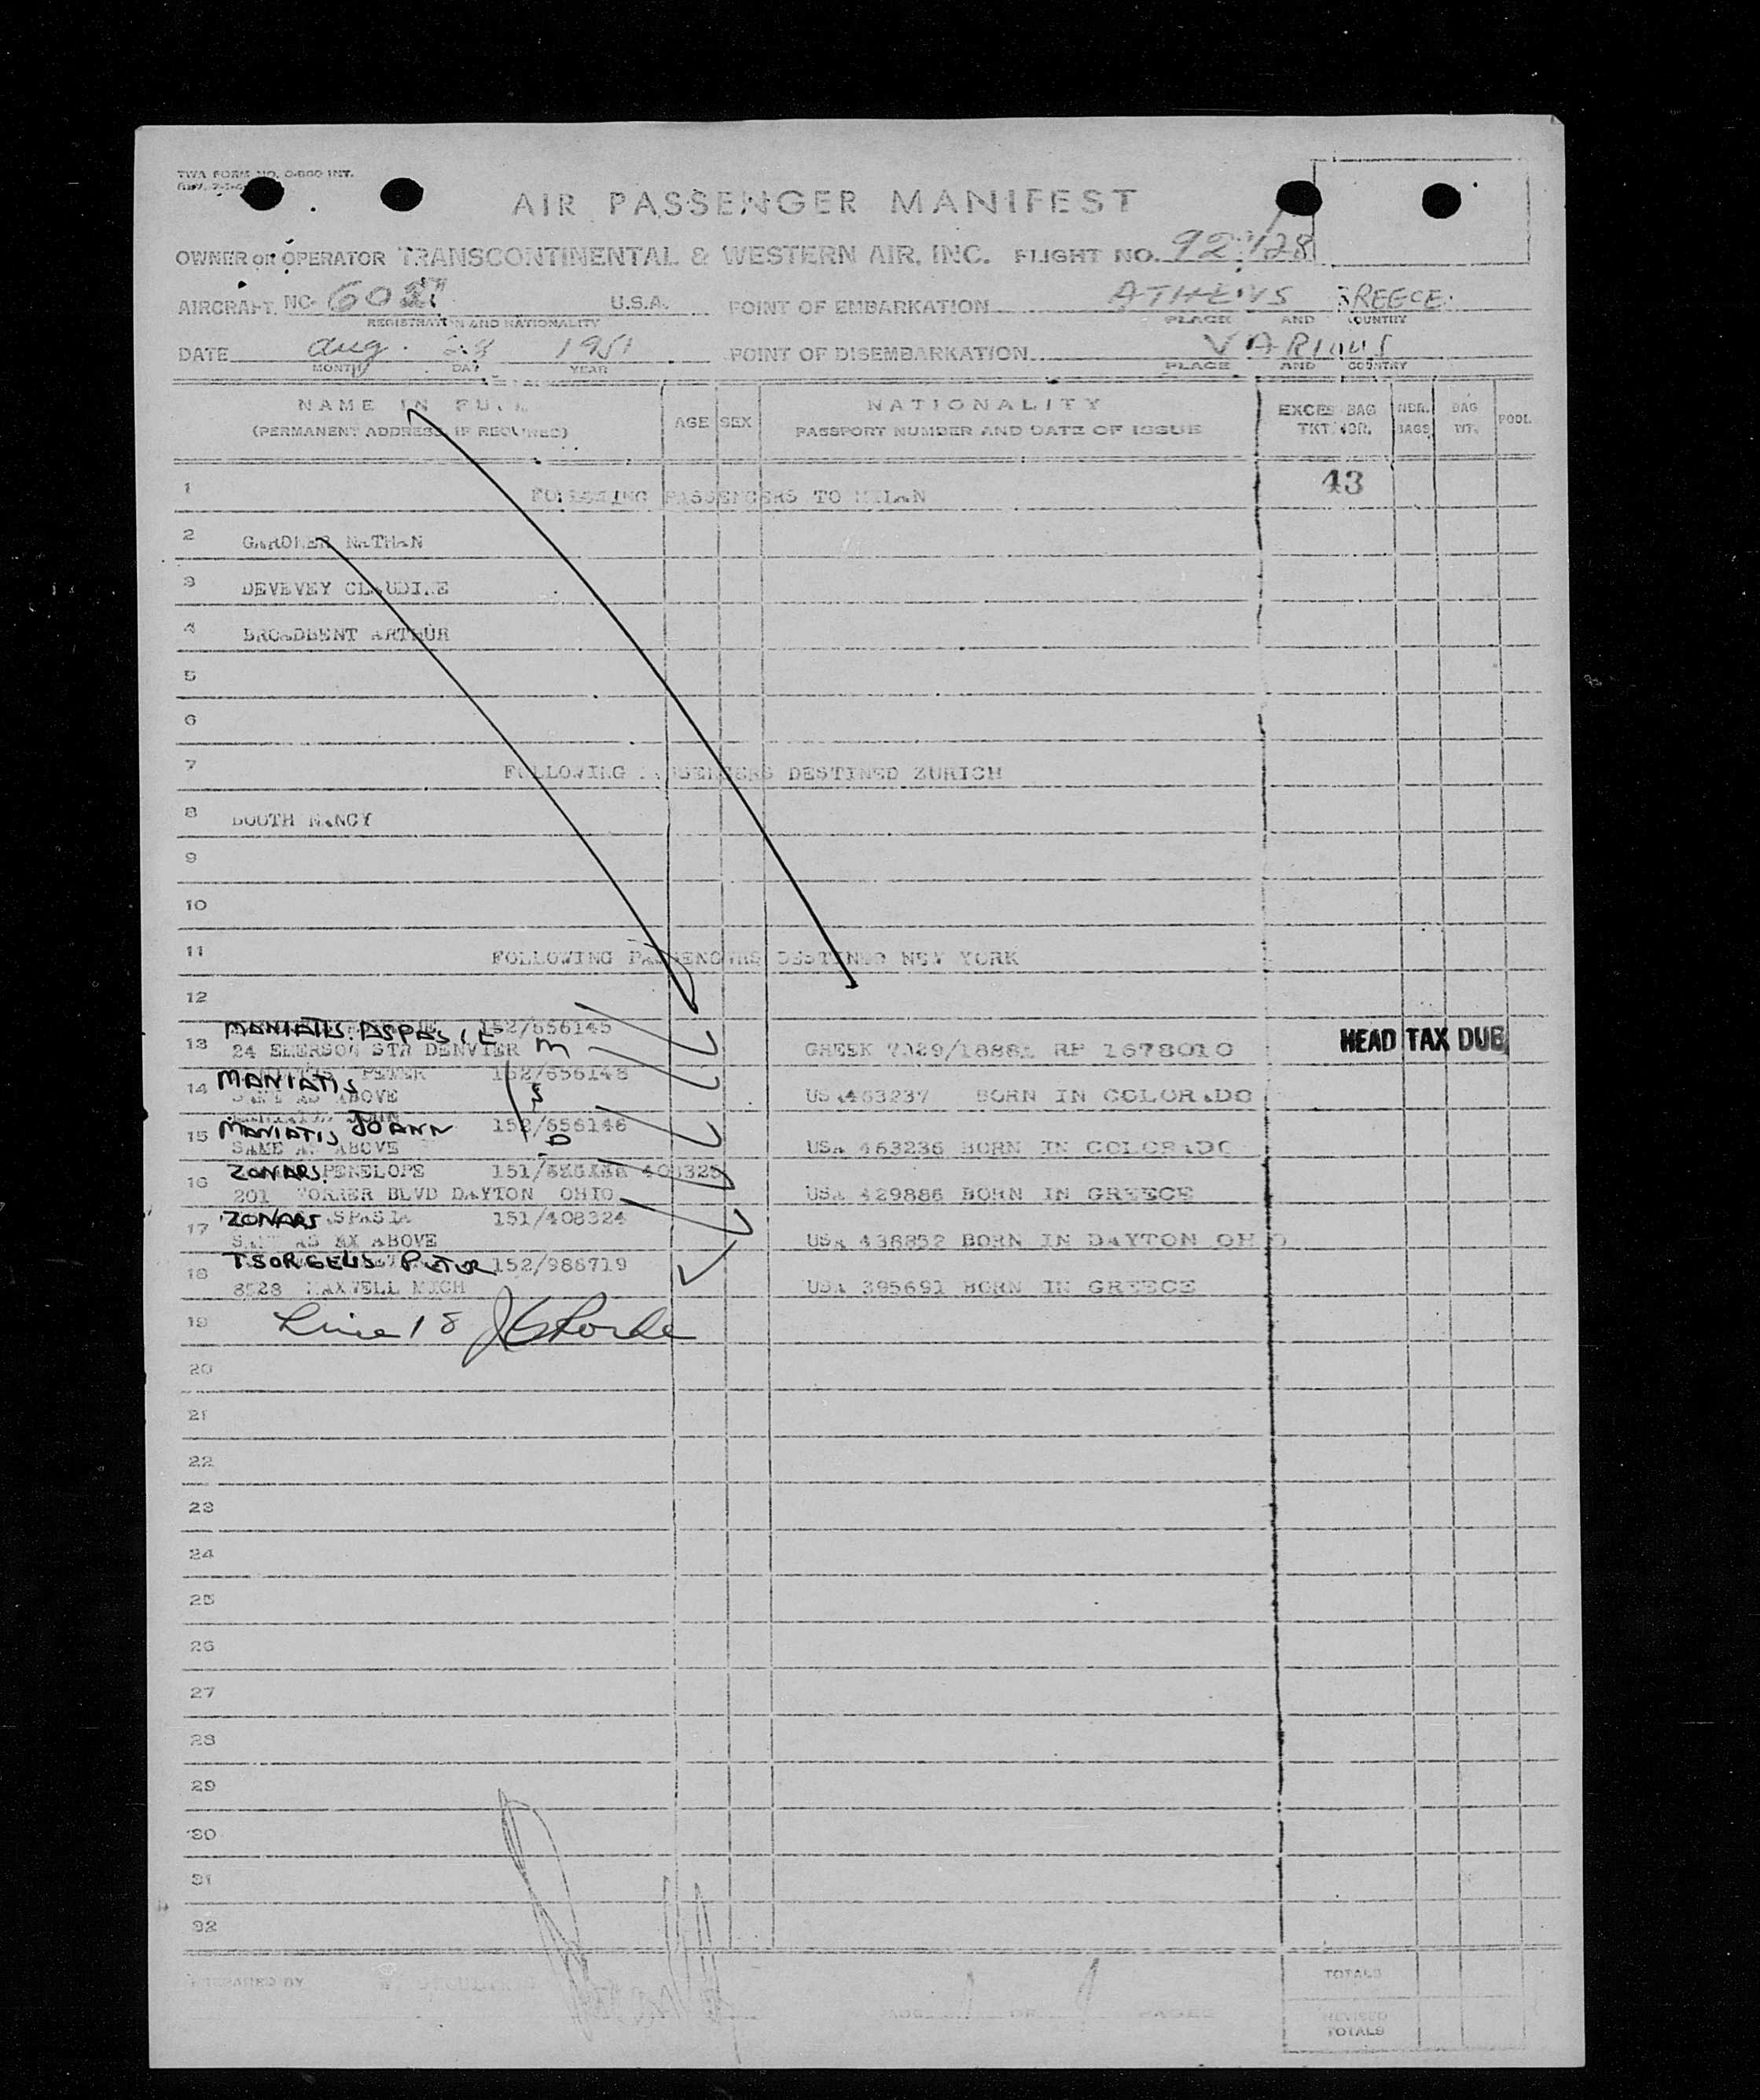 TWA FORM NO. 0-800 INT.
AIR PASSENGER MANIFEST
OWNER OR OPERATOR TRANSCONTINENTAL & WESTERN AIR, INC. FLIGHT NO. 92/128
AIRCRAFT NO. U.S.A. POINT OF EMBARKATION ATHENS GREECE
REGISTRATION AND NATIONALITY PLACE AND COUNTRY
DATE Aug. 28 1951 POINT OF DISEMBARKATION VARIOUS
MONTH DAY YEAR PLACE AND COUNTRY
NAME IN FULL
(PERMANENT ADDRESS IF REQUIRED)
AGE SEX
NATIONALITY
PASSPORT NUMBER AND DATE OF ISSUE
EXCESS BAG
TKT. NBR.
NBR.
BAGS
BAG
WT.
POOL
1 FOLLOWING PASSENGERS TO MILAN 43
2 GARDNER NATHAN
3 DEVEVEY CLAUDINE
4 BROADBENT ARTHUR
5
6
7 FOLLOWING PASSENGERS DESTINED ZURICH
8 BOOTH NANCY
9
10
11 FOLLOWING PASSENGERS DESTINED NEW YORK
12
MANIATIS ASPASIE 152/656145
13 24 EMERSON STR DENVIER M GREEK 7029/18881 RP 1678010 HEAD TAX DUE
MANIATIS PETER 152/656148
14 SAME AS ABOVE USA 463237 BORN IN COLORADO
MANIATIS JOANN 152/656146
15 SAME AS ABOVE USA 463236 BORN IN COLORADO
ZONARS PENELOPE 151/ 408325
16 201 BLVD DAYTON OHIO USA 429886 BORN IN GREECE
ZONARS ASPASIA 151/408324
17 SAME AS XX ABOVE USA 438852 BORN IN DAYTON OHIO
TSORGELIS PETER 152/986719
18 8528 MAXWELL MICH USA 395691 BORN IN GREECE
19 Line 18
20
21
22
23
24
25
26
27
28
29
30
31
32
PREPARED BY
PAGE 1 OF 1 PAGES
TOTALS
REVISED
TOTALS